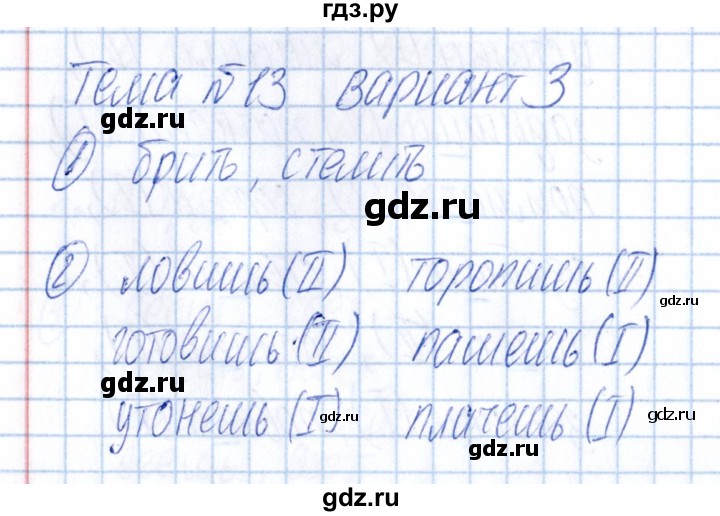 гдз.ру
Тема №13 вариант 3
gdz.ru
① брить, стелить
gdz.ru
② ловишь (II) торопишь (II)
готовишь (II) пашешь (I)
gdz.ru
gdz.ru
gdz.ru
утонешь (I) плачешь (I)
gdz.ru
gdz.ru